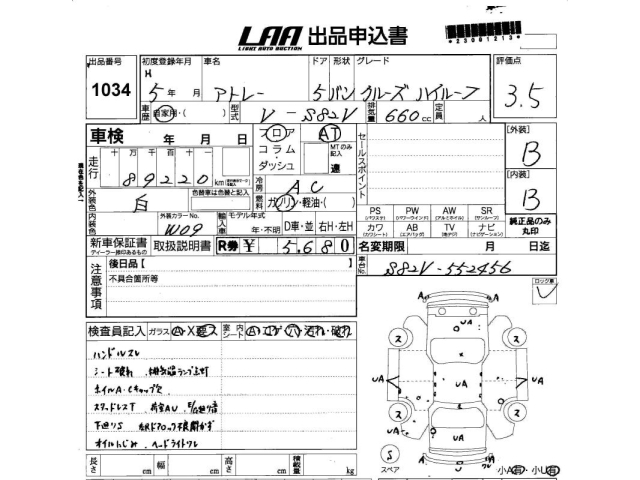 LAA 出品申込書
LIGHT AUTO AUCTION
*23001213*
出品番号 初度登録年月 車名 ドア 形状 グレード 評価点
1034 H 5年 月 アトレー 5 バン クルーズ ハイルーフ 3.5
車歴 自家用・( ) 型式 V-S82V 排気量 660cc 定員 人
車検 年 月 日 フロア AT
コラム・ MTのみ記入
ダッシュ 速
走行 十万千百十一
89220 km
冷房 AC
外装色 白 色替車は色替と記入
燃料 ガソリン・軽油・( )
内装色 外装カラーNo. W09 輸入車 モデル年式 年・不明 D車・並 右H・左H
セールスポイント
[外装] B
[内装] B
PS (パワステ) PW (パワーウインド) AW (アルミホイル) SR (サンルーフ) 純正品のみ丸印
カワ (カワシート) AB (エアバッグ) TV (地デジ) ナビ (ナビゲーション)
新車保証書 取扱説明書 R券 ¥ 5,680 名変期限 月 日迄
ディーラー捺印あるもの
注意事項 後日品[ ] 車台No. S82V-552456
不具合箇所等
ロック車
検査員記入 ガラス A・X 要ス 室内シート A・コゲ・穴・汚れ・破れ
ハンドルスレ
シート破れ 排気温ランプ点灯
ホイルA・Cキャップ欠
スタッドレスT 荷室AU
下廻りS
オイルにじみ ヘッドライトワレ
A A
UA
ス ス
UA UA UA UA
ス ス
UA
S スペア
A UA A
小A有・小U有
長さ cm 幅 cm 高さ cm 積載量 kg